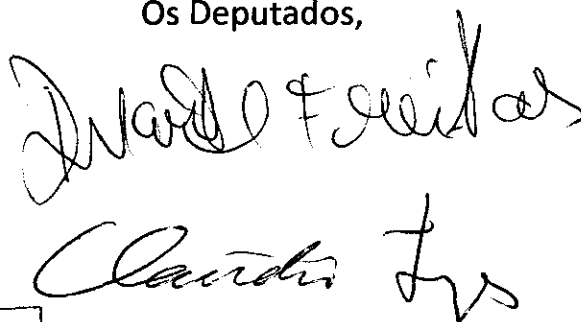 Os Deputados,
Duarte Freitas
Claudio